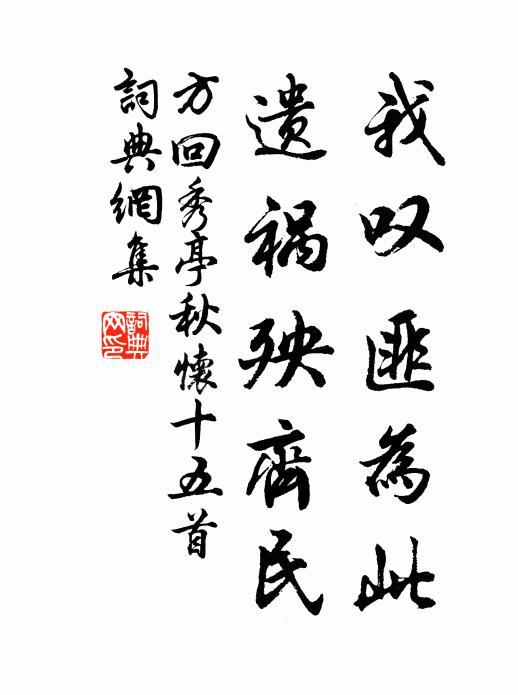 我叹匪為此
遗祸殃齊民
方回秀亭秋懷十五首
詞典網集
詞典网印